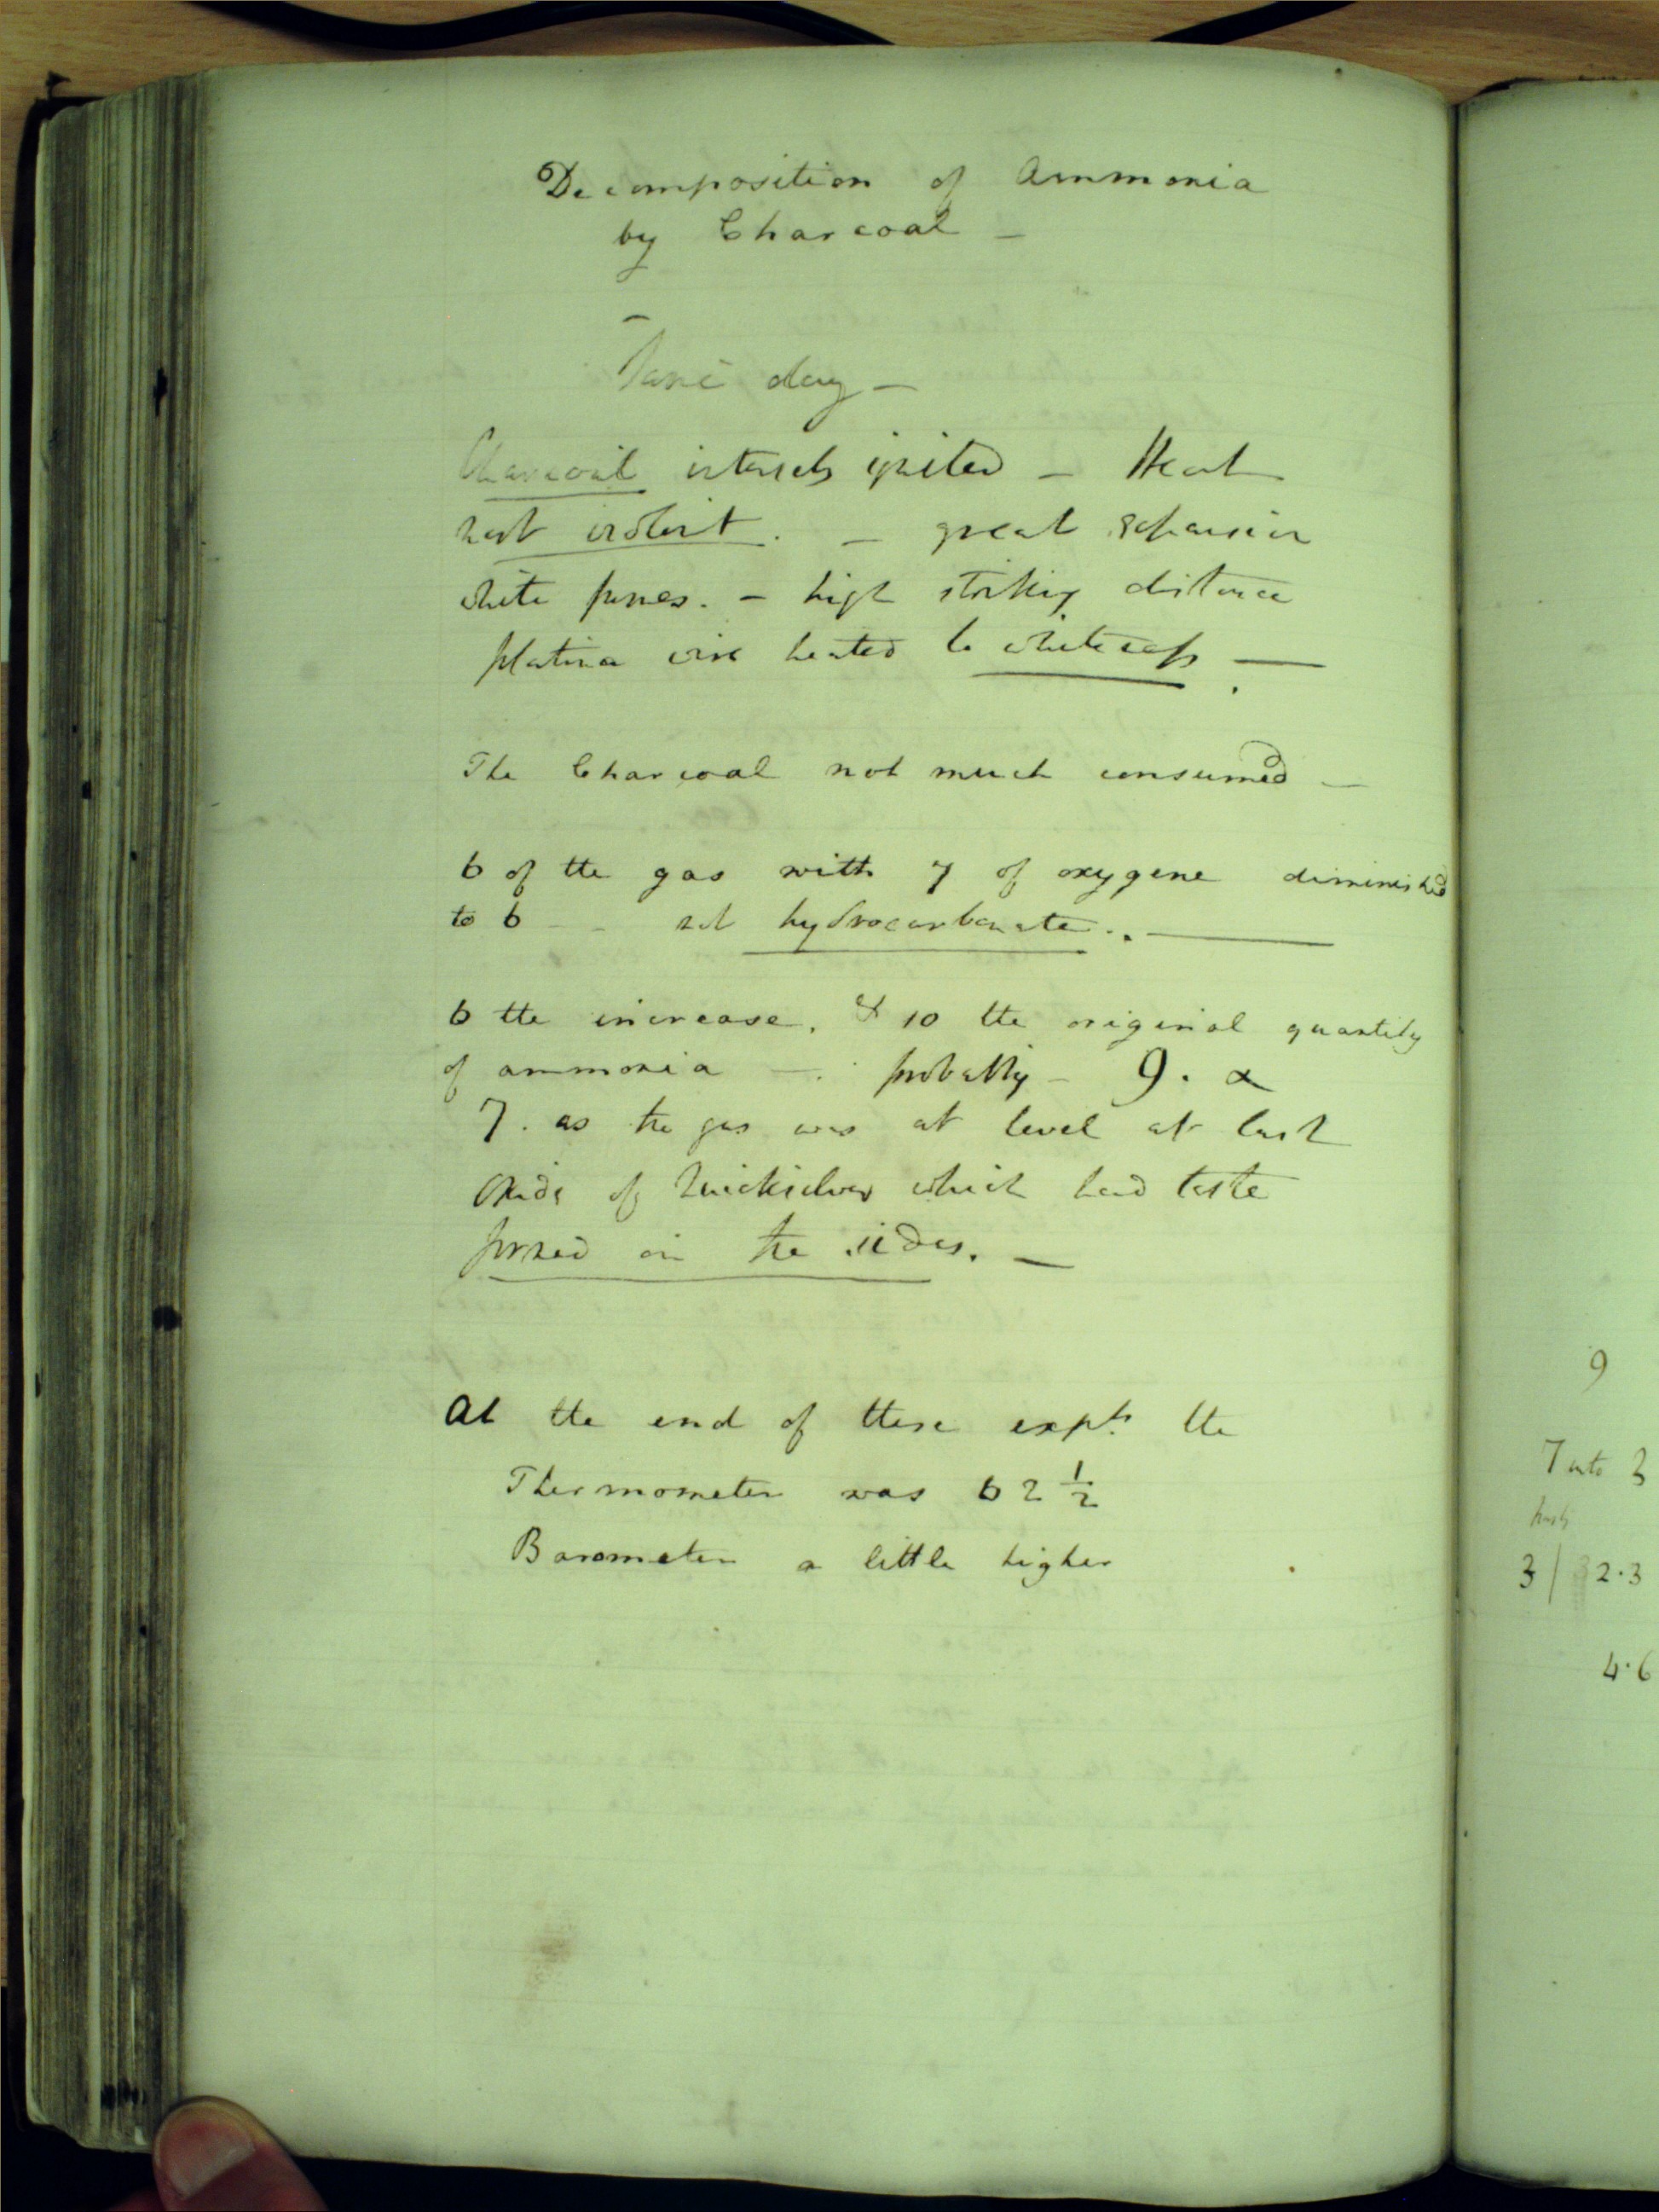 Decomposition of Ammonia
by Charcoal —
Same day —
Charcoal intensely ignited — Heat
most violent. — great expansion
white fumes. — high striking distance
platina wire heated to whiteness —
The Charcoal not much consumed —
6 of the gas with 7 of oxygene diminished
to 6 - - not hydrocarbonate. —
6 the increase, & 10 the original quantity
of ammonia — probably — 9. &
7. as the gas was at level at last
Oxide of Quicksilver which had taste
formed on the sides. —
At the end of these expts. the
Thermometer was 62 1/2
Barometer a little higher
9
7 into 3
3 / 2.3
4.6